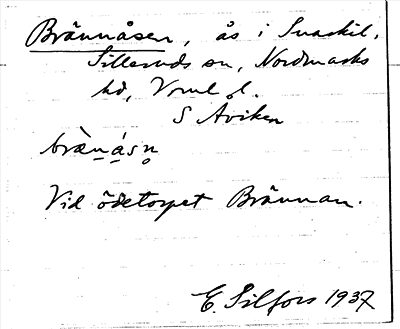 Brännåsen, ås i Svaskil,
Silleruds sn, Nordmarks
hd, Vrml l.
S Aviken
brènásn
Vid ödetorpet Brännan.
E. Silfors 1937